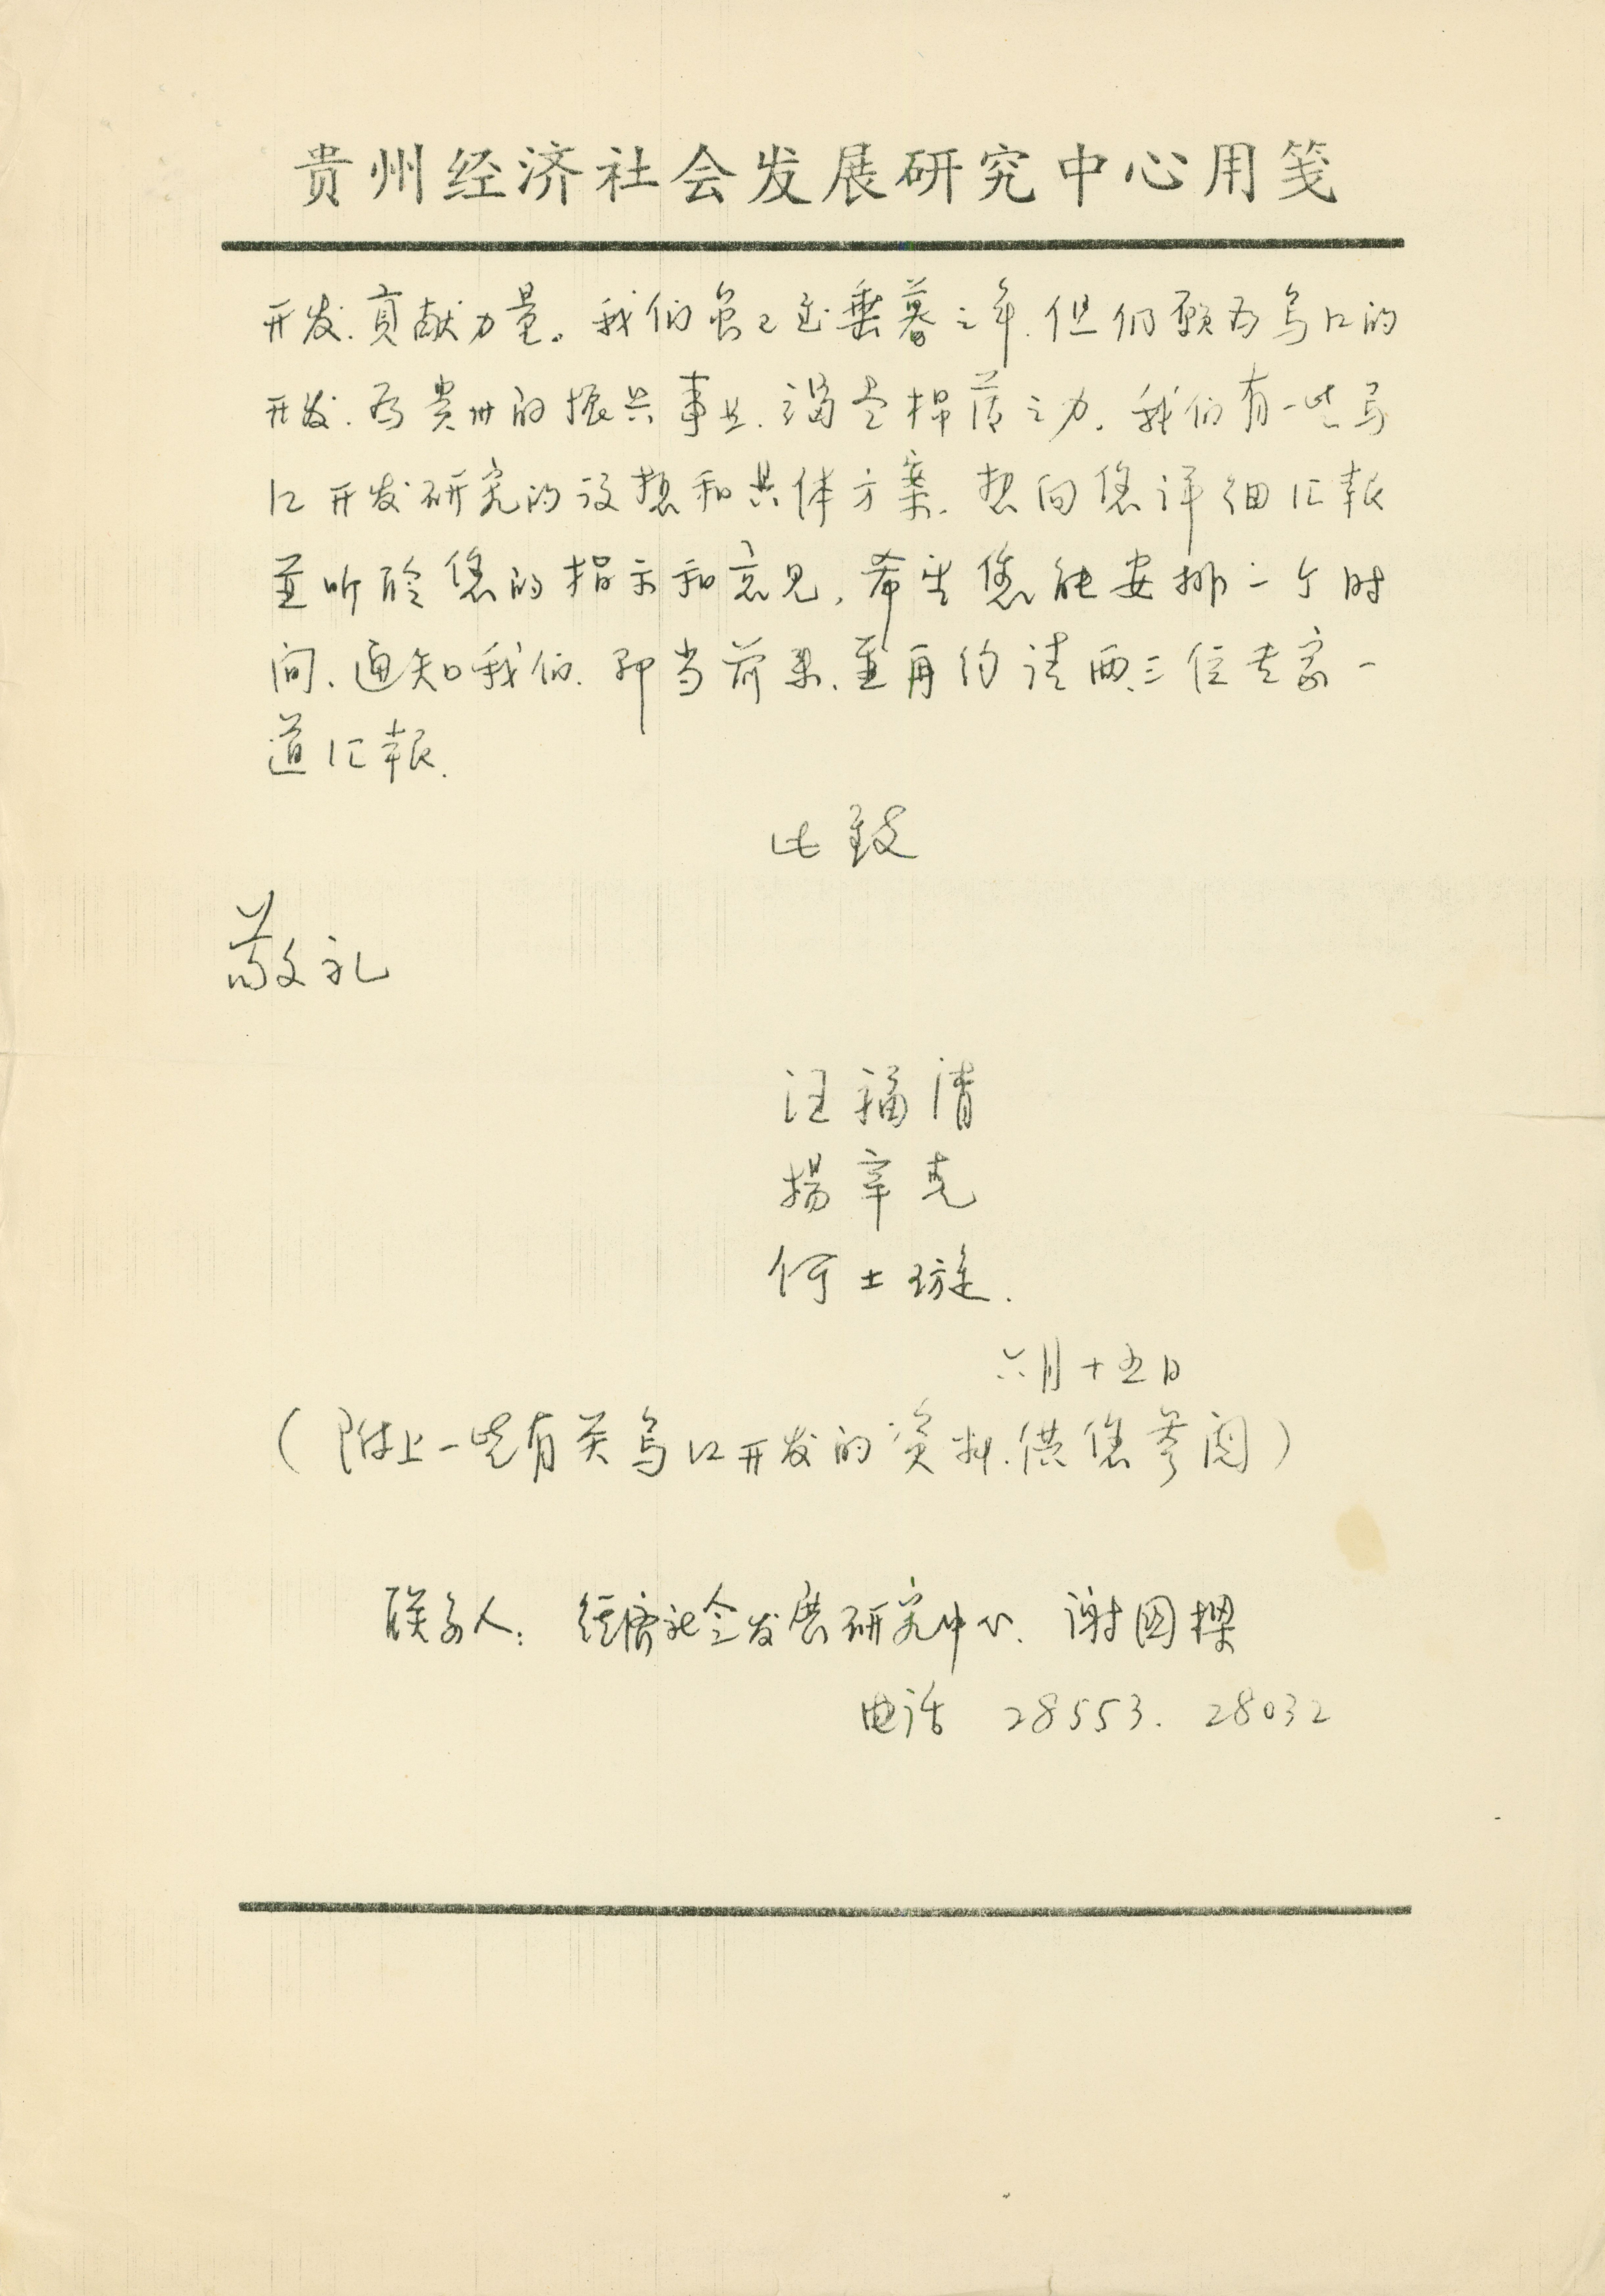 贵州经济社会发展研究中心用笺
开发.贡献力量。我们虽已近垂暮之年.但仍愿为乌江的
开发.为贵州的振兴事业.竭尽绵薄之力。我们有一些乌
江开发研究的设想和具体方案.想向您详细汇报
并听聆您的指示和意见,希望您能安排一个时
间、通知我们.即当前来.并再约请两、三位专家一
道汇报.
此致
敬礼
汪福清
杨辛克
何士璇.
六月十五日
(附上一些有关乌江开发的资料.供您参阅)
联系人: 经济社会发展研究中心. 谢国樑
电话 28553. 28032